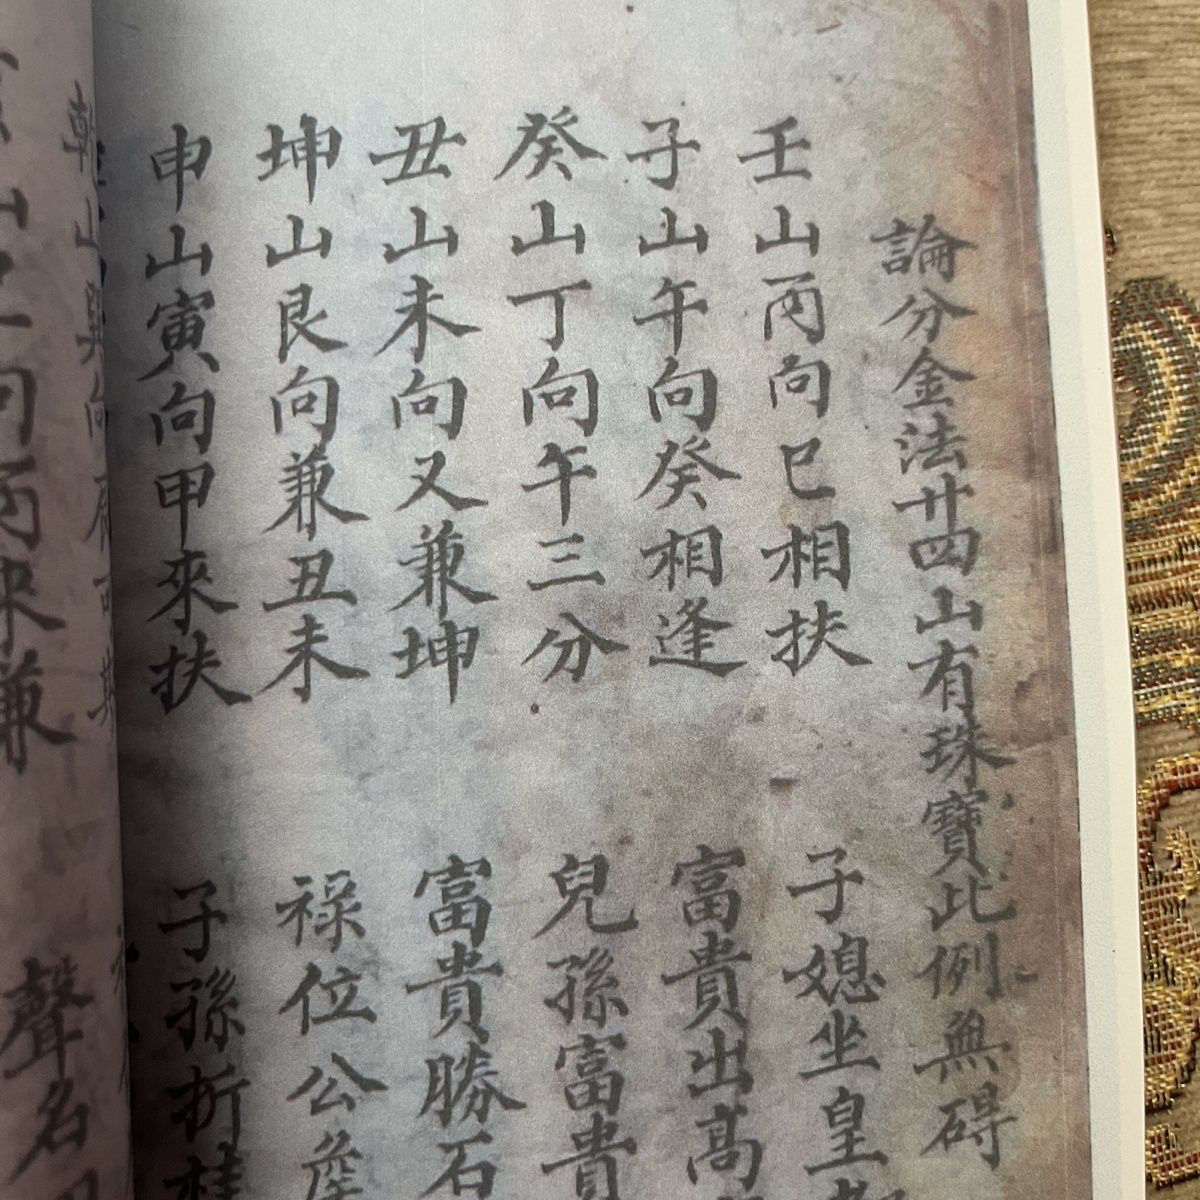 論分金法廿四山有珠寶此例無碍
壬山丙向巳相扶 子媳坐皇
子山午向癸相逢 富貴出高
癸山丁向午三分 兒孫富貴
丑山未向又兼坤 富貴勝石
坤山艮向兼丑未 禄位公
申山寅向甲來扶 子孫折桂
乾山巽向
聲名